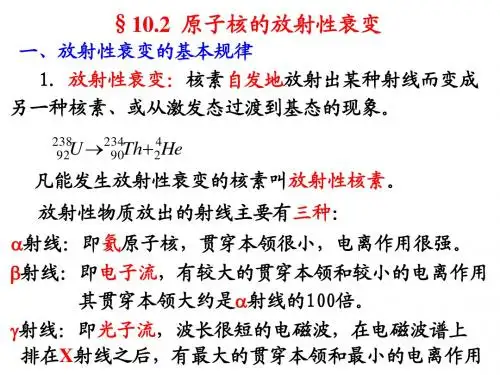 §10.2 原子核的放射性衰变
一、放射性衰变的基本规律
1. 放射性衰变：核素自发地放射出某种射线而变成
另一种核素、或从激发态过渡到基态的现象。
²³⁸₉₂U→²³⁴₉₀Th+⁴₂He
凡能发生放射性衰变的核素叫放射性核素。
放射性物质放出的射线主要有三种：
α射线：即氦原子核，贯穿本领很小，电离作用很强。
β射线：即电子流，有较大的贯穿本领和较小的电离作用
其贯穿本领大约是α射线的100倍。
γ射线：即光子流，波长很短的电磁波，在电磁波谱上
排在X射线之后，有最大的贯穿本领和最小的电离作用